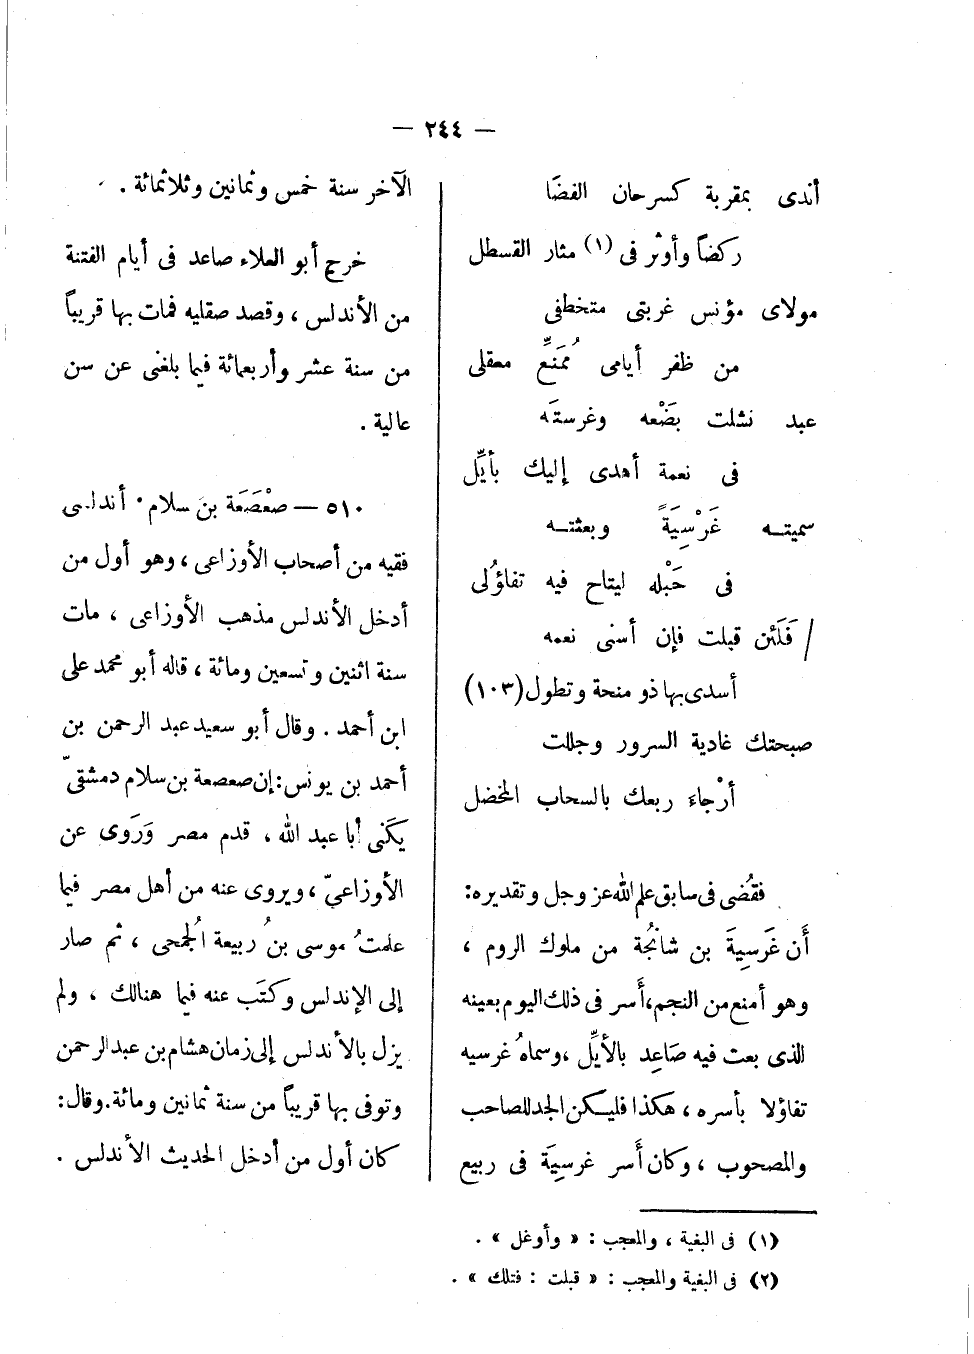 — ٢٤٤ —
أندى بمقربة كسرحان الفضَا
ركضاً وأوثر فى (١) مثار القسطل
مولاى مؤنس غربتى متخطفى
من ظفر أيامى مُمَنِّع معقلى
عبد نشلت بضَعْه وغرستَه
فى نعمة أهدى إليك بأيِّل
سميتـه غَرْسِيَةً وبعثتـه
فى حَبْله ليتاح فيه تفاؤُلى
/ فَلَئن قبلت فإن أسنى نعمه
أسدى بها ذو منحة وتطول (١٠٣)
صبحتك غادية السرور وجللت
أرْجاءَ ربعك بالسحاب المخضل
فقُضى فى سابق علم الله عز وجل وتقديره:
أَن غَرَسِيةَ بن شانْجُة من ملوك الروم ،
وهو أمنع من النجم، أَسر فى ذلك اليوم بعينه
الذى بعث فيه صَاعِد بالأيِّل ، وسماهُ غرسيه
تفاؤلا بأسره ، هكذا فليكن الجد للصاحب
والمصحوب ، وكان أَسر غرسِيَة فى ربيع
الآخر سنة خمس وثمانين وثلاثمائة .
خرج أبو العلاء صاعد فى أيام الفتنة
من الأندلس ، وقصد صقليه فمات بها قريباً
من سنة عشر وأربعمائة فيما بلغنى عن سن
عالية .
٥١٠ — صعْصَعَة بن سلام أندلسى
فقيه من أصحاب الأوزاعى ، وهو أول من
أدخل الأندلس مذهب الأوزاعى ، مات
سنة اثنين وتسعين ومائة ، قاله أبو محمد على
ابن أحمد . وقال أبو سعيد عبد الرحمن بن
أحمد بن يونس : إن صعصعة بن سلام دمشقىّ
يكَنى أبا عبد الله ، قدم مصر وَرَوى عن
الأوزاعىّ ، ويروى عنه من أهل مصر فيما
علمتُ موسى بنُ ربيعة الجُمحى ، ثم صار
إلى الإندلس وكتَب عنه فيما هنالك ، ولم
يزل بالأندلس إلى زمان هشام بن عبد الرحمن
وتوفى بها قريباً من سنة ثمانين ومائة . وقال :
كان أول من أدخل الحديث الأندلس .
(١) فى البغية ، والمعجب : « وأوغل » .
(٢) فى البغية والمعجب : « قبلت : فتلك » .